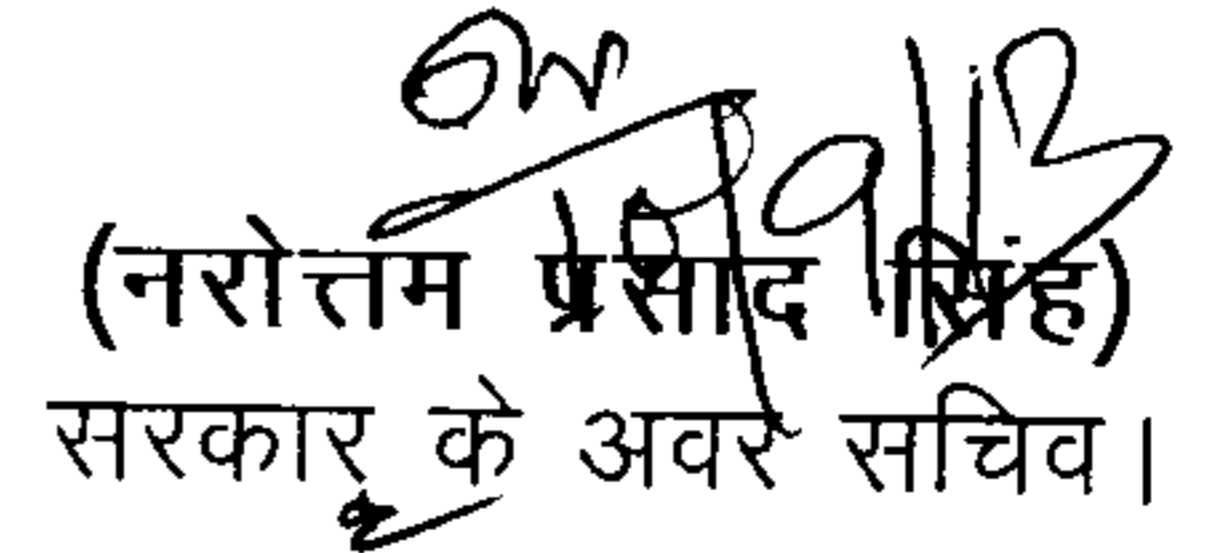 (नरोत्तम प्रसाद सिंह)
सरकार के अवर सचिव।